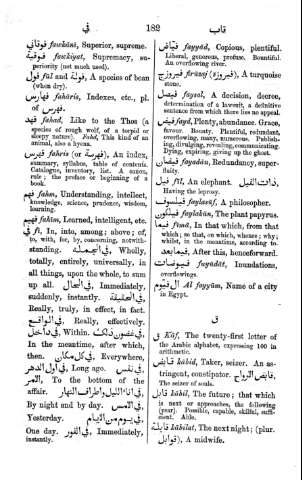 في
182
قاب
فوقاني fawkání, Superior, supreme.
fawkiyat, Supremacy, superiority (not much used).
فول fúl and فولة, A species of bean
(when dry).
فهارس faháris, Indexes, etc., pl.
of فهرس.
فهد fahad, Like to the Thos (a
species of rough wolf, of a torpid or
sleepy nature). Fahd, This kind of an
animal, also a hyena.
فهرس fahris (or فهرسة), An index,
summary, syllabus, table of contents.
Catalogue, inventory, list. A canon,
rule; the preface or beginning of a
book.
فهم fahm, Understanding, intellect,
knowledge, science, prudence, wisdom,
learning.
فهيم fahím, Learned, intelligent, etc.
في fí, In, into, among; above; of,
to, with, for, by, concerning, notwith-
standing. في الجملة, Wholly,
totally, entirely, universally, in
all things, upon the whole, to sum
up all. في الحال, Immediately,
suddenly, instantly. في الحقيقة,
Really, truly, in effect, in fact.
في الواقع, Really, effectively.
في غضون ذلك, Within. في داخل,
In the meantime, after which,
then. في كل مكان, Everywhere,
في اول الدهر, Long ago. في نفس
الامر, To the bottom of the
affair. في اناء الليل واطراف النهار,
By night and by day. في الامس,
Yesterday. في يوم من الايام,
One day. في الفور, Immediately,
instantly.
فياض fayyád, Copious, plentiful.
Liberal, generous, profuse. Bounty.
An overflowing river.
فيروزج fírúzaj (فيروزة), A turquoise
stone.
فيصل faysal, A decision, decree,
determination of a lawsuit, a definitive
sentence from which there lies an appeal.
فيض fayd, Plenty, abundance. Grace,
favour. Bounty. Plentiful, redundant,
overflowing, many, numerous. Publish-
ing, divulging, revealing, communicating.
Dying, expiring, giving up the ghost.
فيضان fayadán, Redundancy, super-
fluity.
فيل fíl, An elephant. ذات الفيل,
Having the leprosy.
فيلسوف faylasúf, A philosopher.
فيلكون faylakún, The plant papyrus.
فيما fímá, In that which, from that
which; so that, on which, whence; why;
whilst, in the meantime, according to.
فيما بعد, After this, henceforward.
فيوضات fuyúdát, Inundations,
overflowings.
الفيوم Al fayyúm, Name of a city
in Egypt.
ق
ق Káf, The twenty-first letter of
the Arabic alphabet, expressing 100 in
arithmetic.
قابض kábid, Taker, seizer. An as-
tringent, constipator. قابض الارواح,
The seizer of souls.
قابل kábil, The future; that which
is next or approaches, the following
(year). Possible, capable, skilful, suffi-
cient. Able.
قابلة kábilat, The next night; (plur.
قوابل), A midwife.